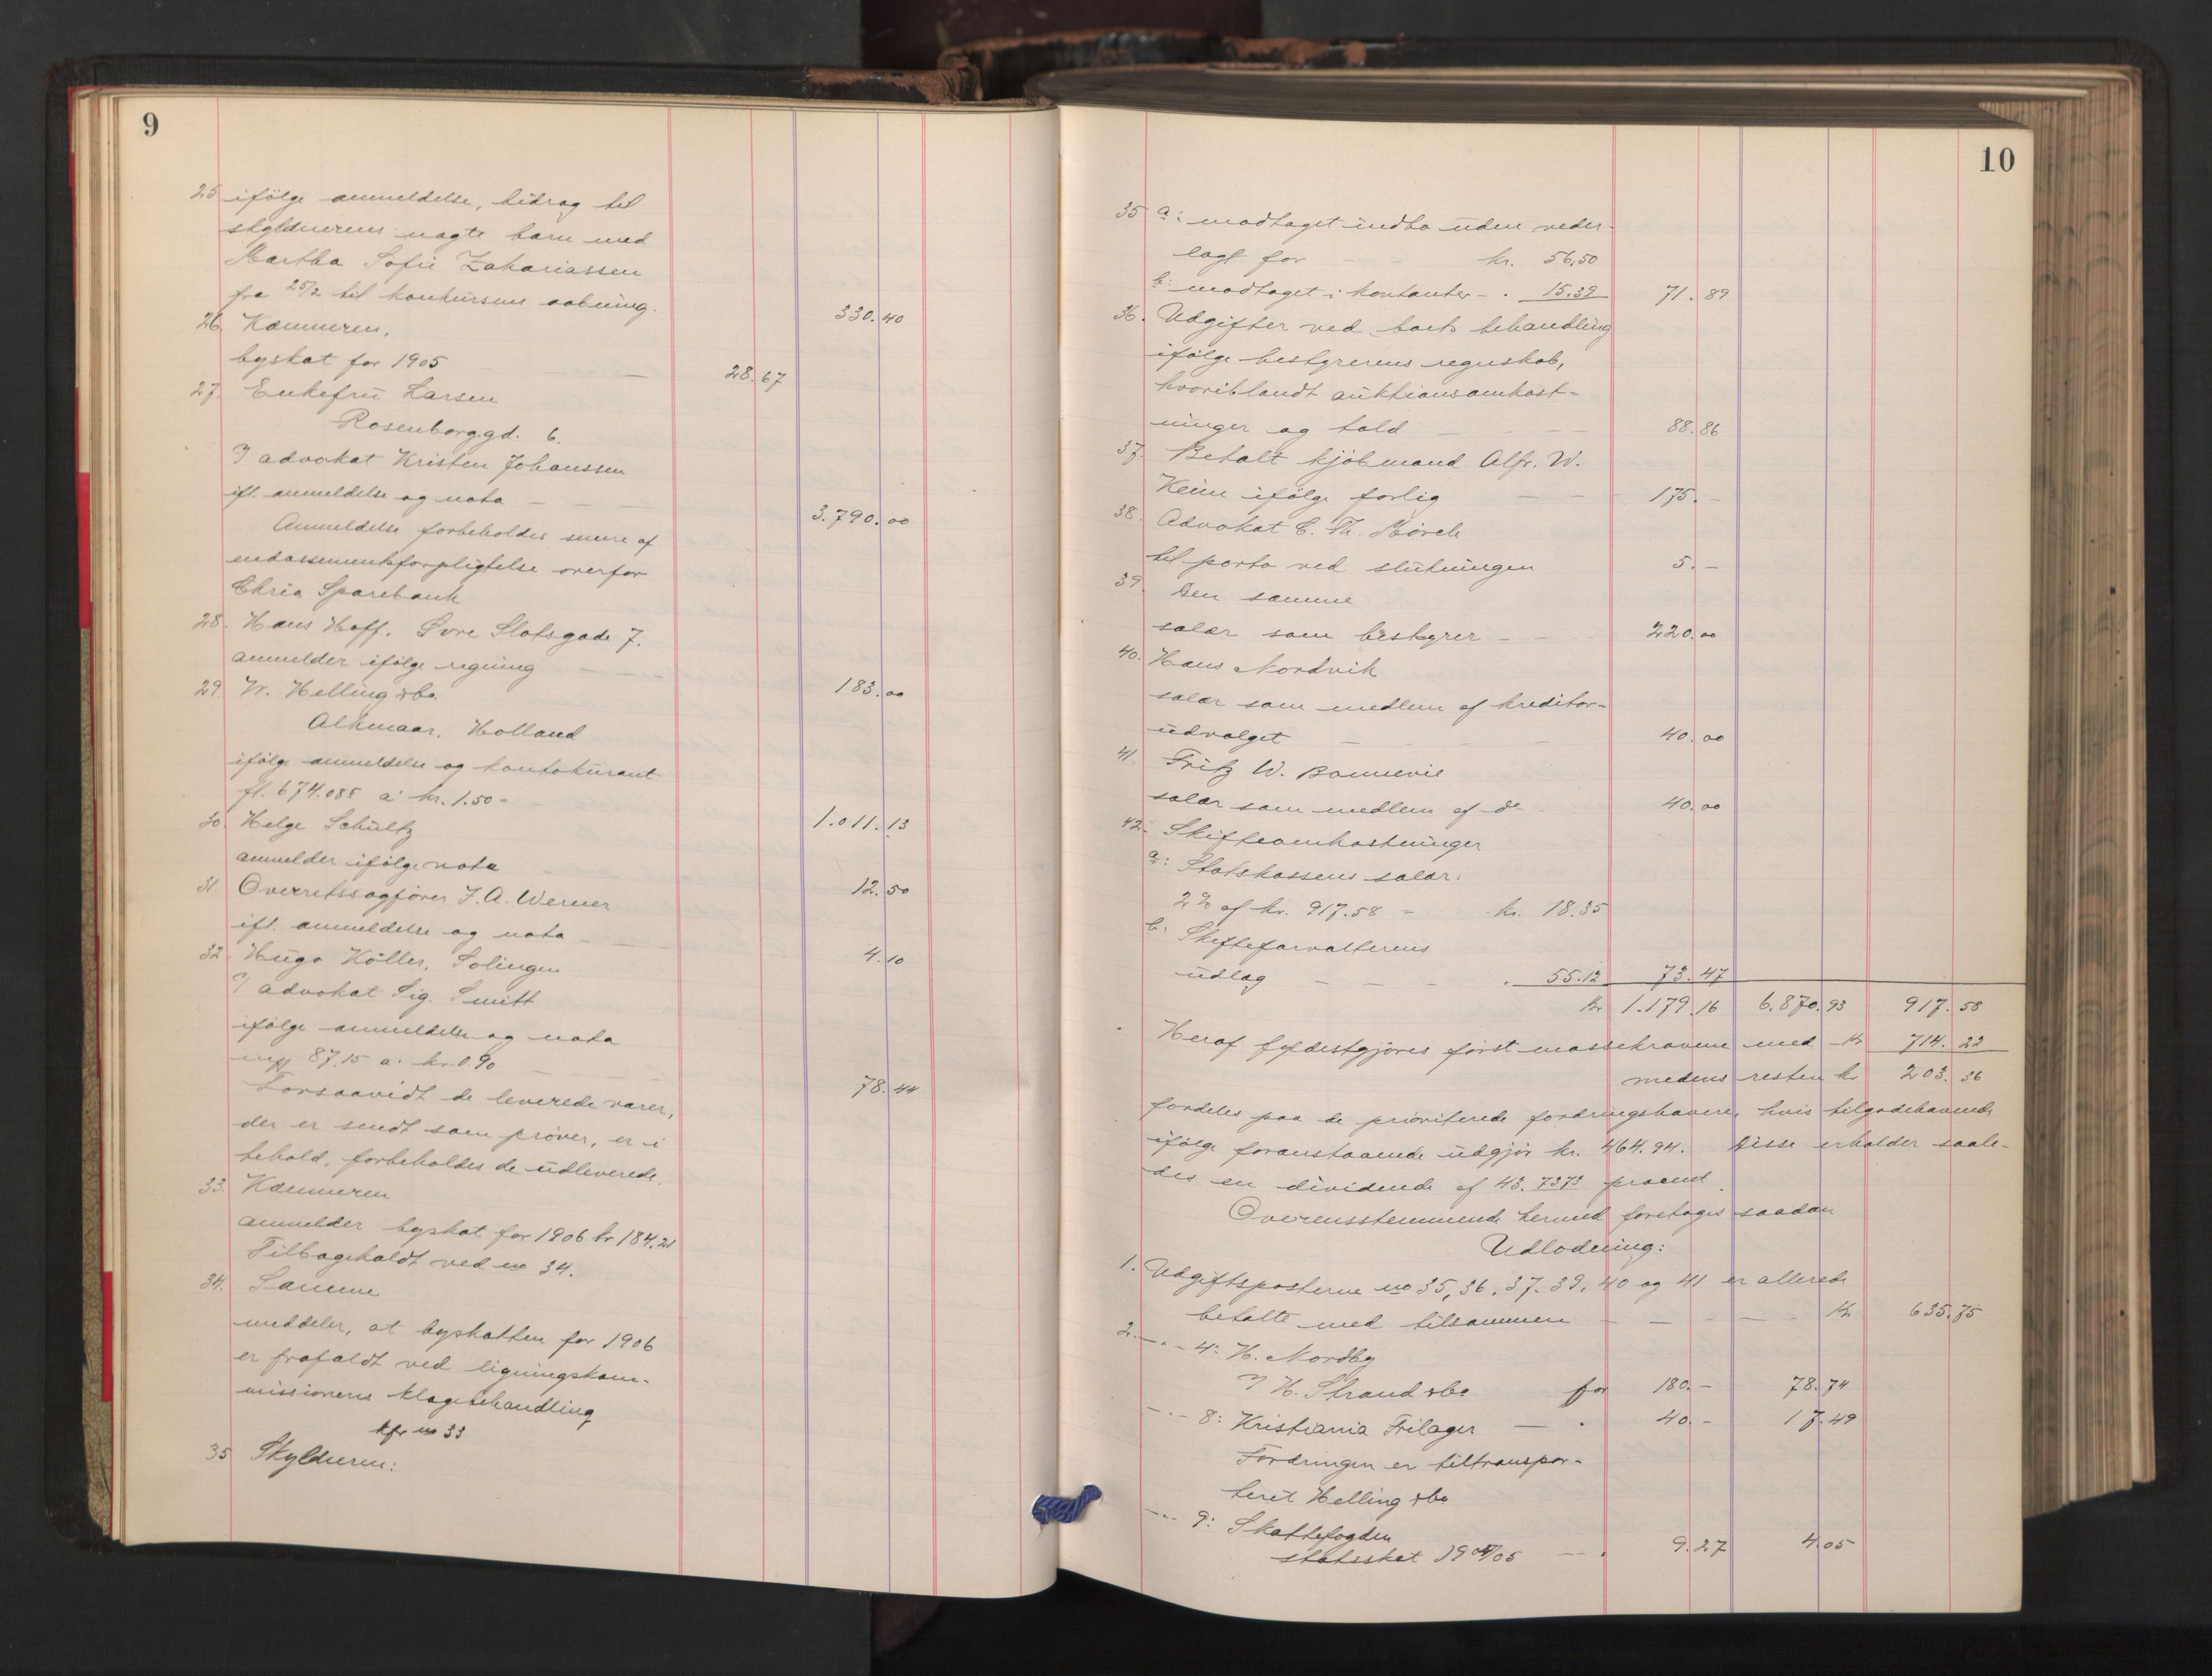 9
25 ifölge anmeldelse, bidrag til
skyldnerens uægte barn med
Martha Sofie Zakariassen
fra 25/2 til konkursens aabning. 330.40
26. Kæmneren,
byskat for 1905 — 28.67
27. Enkefrü Larsen
Rosenborggd. 6.
v/ advokat Kristen Johanssen
ifl. anmeldelse og nota — 3.790.00
Anmeldelse forbeholdes senere af
endossementsforpligtelse overfor
Chria Sparebank
28. Hans Hoff. Øvre Slotsgade 7.
anmelder ifölge regning — 183.00
29. W. Helling & Co.
Alkmaar. Holland
ifölge anmeldelse og kontokurant
fl. 674.085 a' kr. 1.50 - 1.011.13
30. Helge Schültz
anmelder ifölge nota 12.50
31. Overretssagfører J. A. Werner
ifl. anmeldelse og nota — 4.10
32. Hügo Köller, Solingen
v/ advokat Sig. Smitt
ifölge anmeldelse og nota
87.15 a' kr. 0.90 — 78.44
Forsaavidt de leverede varer,
der er sendt som prøver, er i
behold, forbeholdes de üdleverede.
33. Kæmneren
anmelder byskat for 1906 kr 184.21
Tilbageholdt ved no 34.
34. Samme
meddeler, at byskatten for 1906
er frafaldt ved ligningskom-
missionens klagebehandling
kfr no 33
35 Skyldneren:
10
35 a: modtaget indbo üden veder-
lagt for — kr. 56,50
b: modtaget i kontanter - . 15.39 71.89
36. Udgifter ved boets behandling
ifölge bestyrerens regnskab,
hvoriblandt aüktionsomkost-
ninger og told — 88.86
37. Betalt kjöbmand Alfr. W.
Keim ifölge forlig — 175.-
38. Advokat C. Th. Mörch
til porto ved slütningen 5.-
39. Den samme
salær som bestyrer - 220.00
40. Hans Nordvik
salær som medlem af kreditor-
üdvalget — 40.00
41. Fritz W. Bonnevie
salær som medlem af do 40.00
42. Skifteomkostninger
a: Statskassens salær:
2 % af kr. 917.58 - kr. 18.35
b: Skifteforvalterens
üdlæg — . 55.12 73.47
kr 1.179.16 6.870.93 917.58
Heraf fyldestgjøres først massekravene med — kr 714.22
medens resten kr 203.36
fordeles paa de prioriterede fordringshavere, hvis tilgodehavende
ifölge foranstaaende üdgjör kr. 464.94. Disse erholder saale-
des en dividende af 43.7373 procent.
Overensstemmende hermed foretages saadan
Udlodning:
1. Udgiftsposterne no 35, 36, 37. 39, 40 og 41 er allerede
betalte med tilsammen — kr 635.75
2. — . - 4: H. Nordby
v/ H. Strand & Co for 180.- 78.74
- . - 8: Kristiania Frilager — . 40.- 17.49
Fordringen er tiltranspor-
teret Helling & Co
- . - 9: Skattefogden
statsskat 1904/05 — . 9.27 4.05